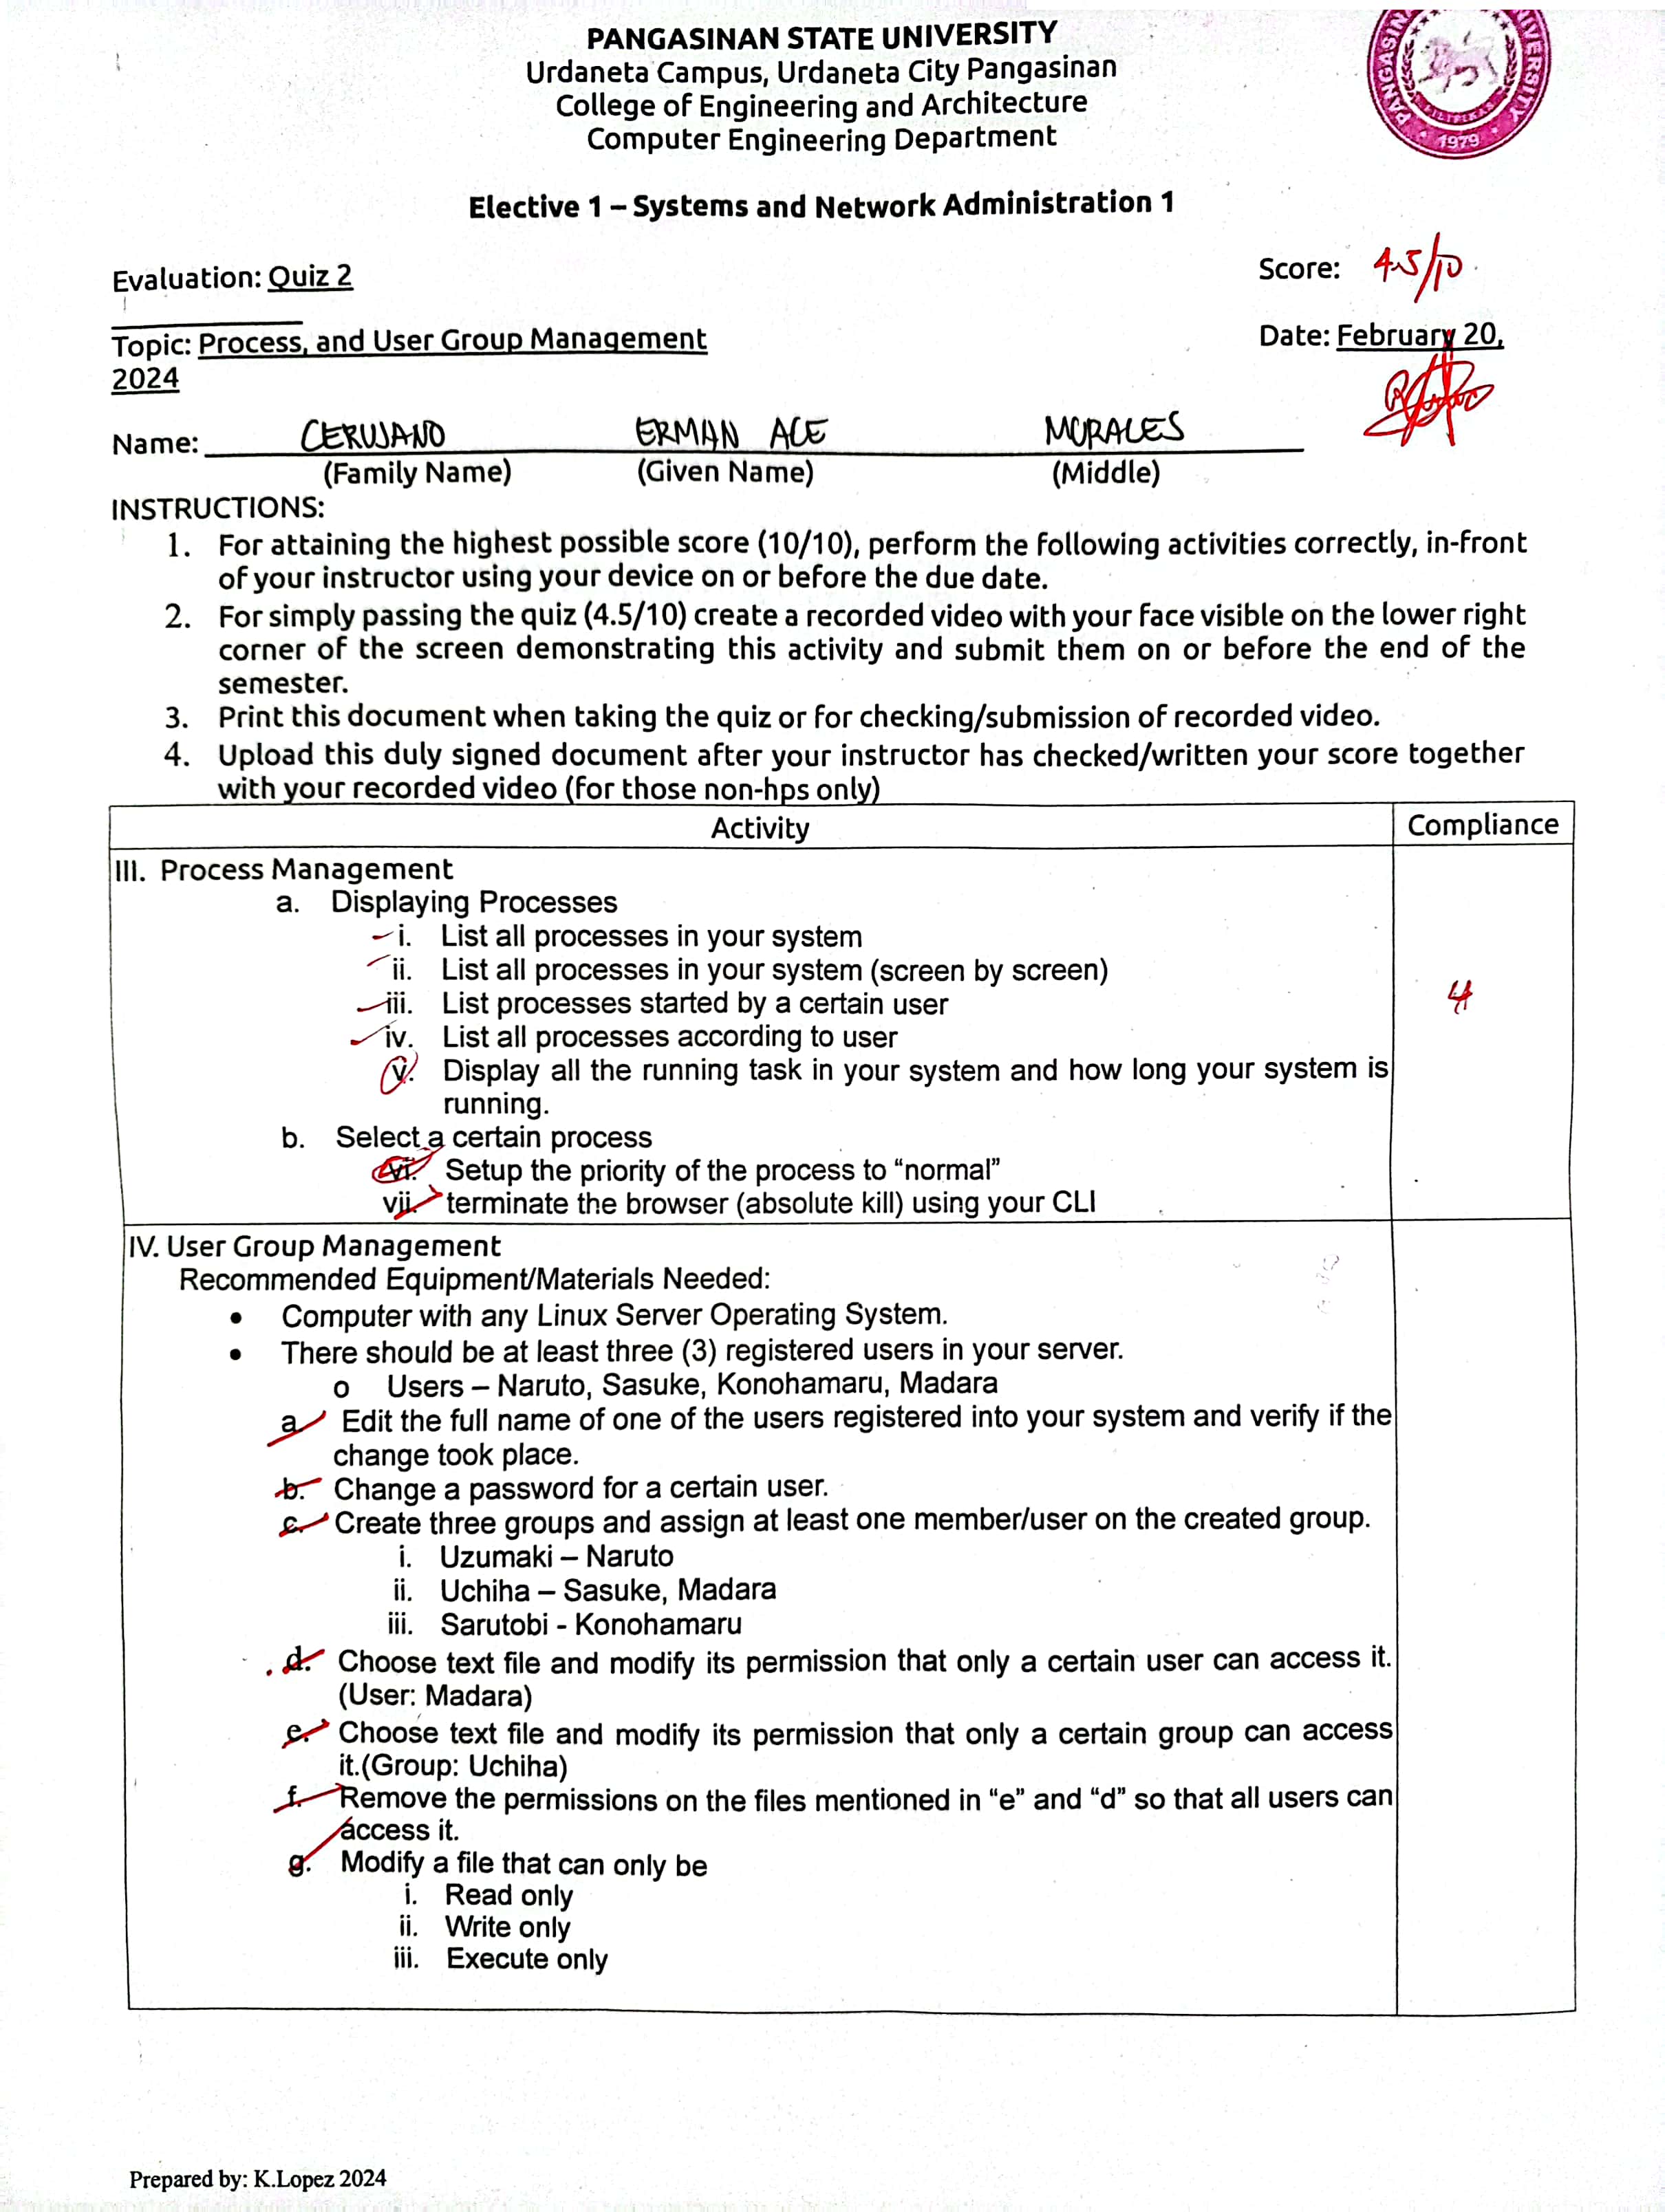 PANGASINAN STATE UNIVERSITY
Urdaneta Campus, Urdaneta City Pangasinan
College of Engineering and Architecture
Computer Engineering Department
1979
Elective 1 – Systems and Network Administration 1
Evaluation: Quiz 2
Score: 4.5/10
Topic: Process, and User Group Management
Date: February 20,
2024
Name: CERUJANO ERMAN ACE MORALES
(Family Name) (Given Name) (Middle)
INSTRUCTIONS:
1. For attaining the highest possible score (10/10), perform the following activities correctly, in-front
of your instructor using your device on or before the due date.
2. For simply passing the quiz (4.5/10) create a recorded video with your face visible on the lower right
corner of the screen demonstrating this activity and submit them on or before the end of the
semester.
3. Print this document when taking the quiz or for checking/submission of recorded video.
4. Upload this duly signed document after your instructor has checked/written your score together
with your recorded video (for those non-hps only)
Activity Compliance
III. Process Management
a. Displaying Processes
i. List all processes in your system
ii. List all processes in your system (screen by screen)
iii. List processes started by a certain user
4
iv. List all processes according to user
v. Display all the running task in your system and how long your system is
running.
b. Select a certain process
vi. Setup the priority of the process to “normal”
vii. terminate the browser (absolute kill) using your CLI
IV. User Group Management
Recommended Equipment/Materials Needed:
• Computer with any Linux Server Operating System.
• There should be at least three (3) registered users in your server.
o Users – Naruto, Sasuke, Konohamaru, Madara
a. Edit the full name of one of the users registered into your system and verify if the
change took place.
b. Change a password for a certain user.
c. Create three groups and assign at least one member/user on the created group.
i. Uzumaki – Naruto
ii. Uchiha – Sasuke, Madara
iii. Sarutobi - Konohamaru
d. Choose text file and modify its permission that only a certain user can access it.
(User: Madara)
e. Choose text file and modify its permission that only a certain group can access
it.(Group: Uchiha)
f. Remove the permissions on the files mentioned in “e” and “d” so that all users can
access it.
g. Modify a file that can only be
i. Read only
ii. Write only
iii. Execute only
Prepared by: K.Lopez 2024